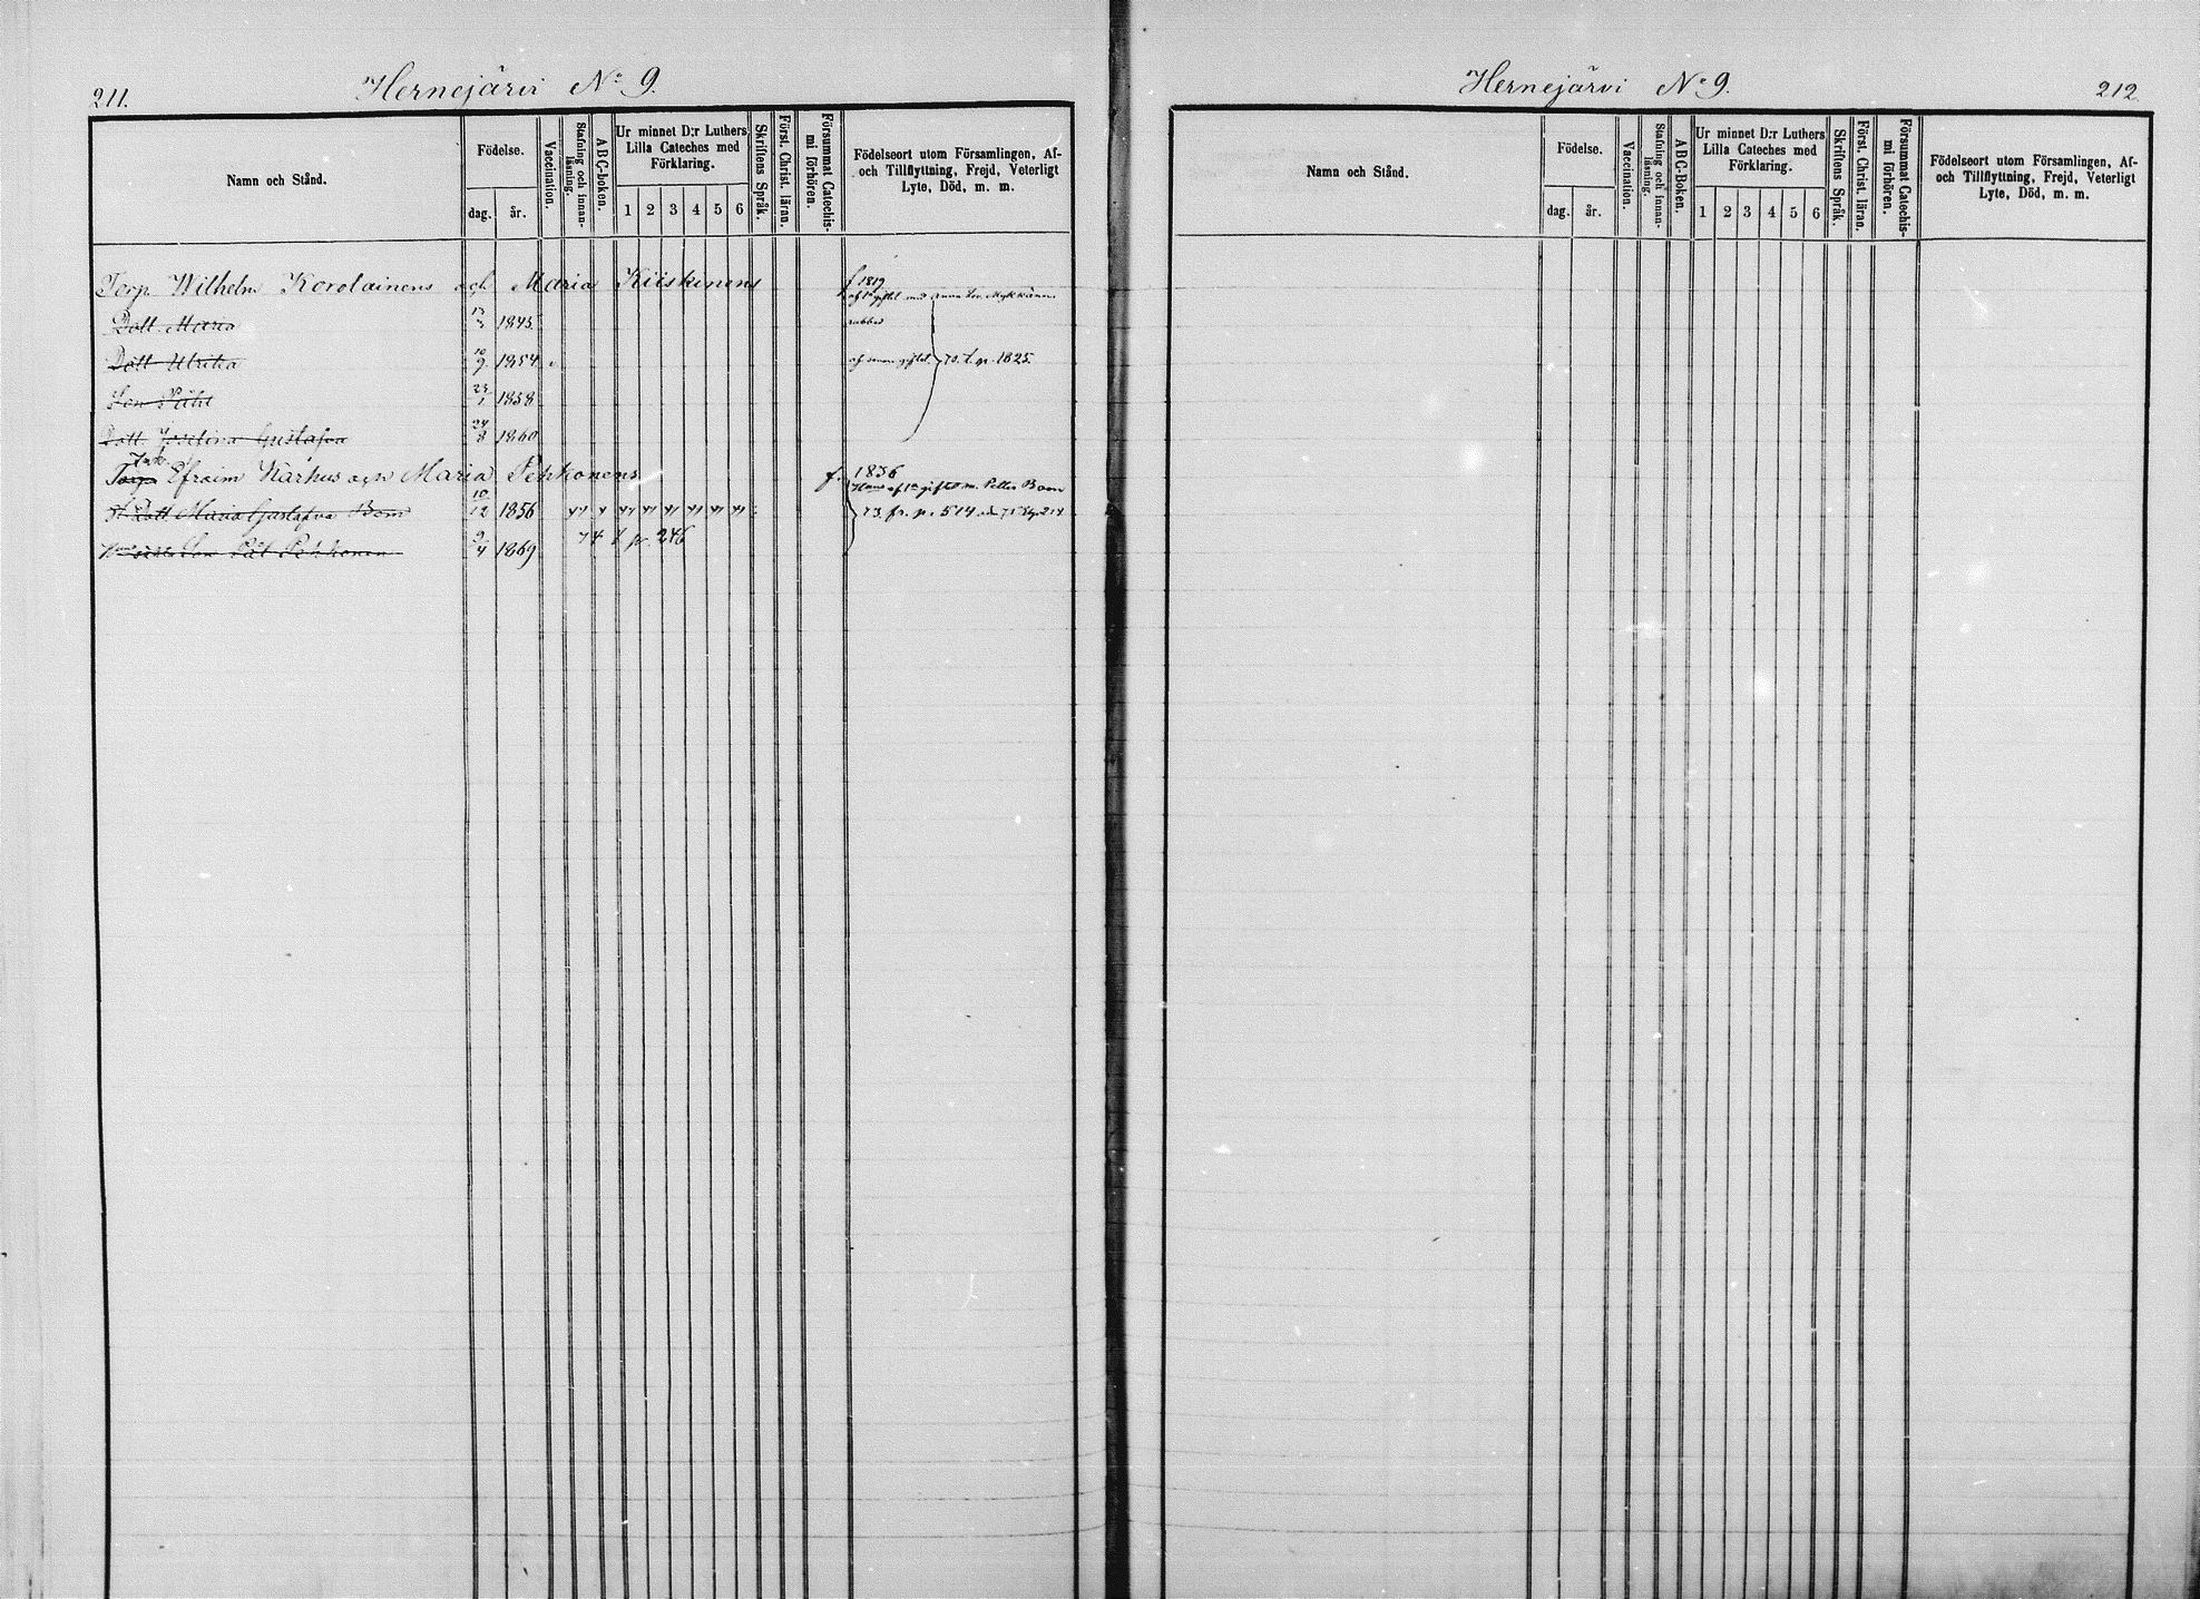 211.
Hernejärvi No 9.
Namn och Stånd.
Födelse.
dag.
år.
Vaccination.
Stafning och innan-
läsning.
ABC-boken.
Ur minnet D:r Luthers
Lilla Cateches med
Förklaring.
1 2 3 4 5 6
Skriftens Språk.
Först. Christ. läran.
Försummat Catechis-
mi förhören.
Födelseort utom Församlingen, Af-
och Tillflyttning, Frejd, Veterligt
Lyte, Död, m. m.
Torp. Wilhelm Korolainens och Maria Kiiskinens
f 1819
giftel med Anna Lov. Mykkänen
Dott. Maria 1845
Dott Ulrika 10/9 1854
70. t. p. 1825.
Son Påhl 23/1 1858
Dott. Josefina Gustafva 24/8 1860
Torp Efraim Karhus och Maria Pehkonens
f. 1836
gifted m. Petter Bom
Dott Maria Gustafva Bom 10/12 1856
73. fr. p. 514
Son Pål Pehkonen 9/4 1869
74 t p. 246
Hernejärvi No 9.
212.
Namn och Stånd.
Födelse.
dag.
år.
Vaccination.
Stafning och innan-
läsning.
ABC-Boken.
Ur minnet D:r Luthers
Lilla Cateches med
Förklaring.
1 2 3 4 5 6
Skriftens Språk.
Först. Christ. läran.
Försummat Catechis-
mi förhören.
Födelseort utom Församlingen, Af-
och Tillflyttning, Frejd, Veterligt
Lyte, Död, m. m.